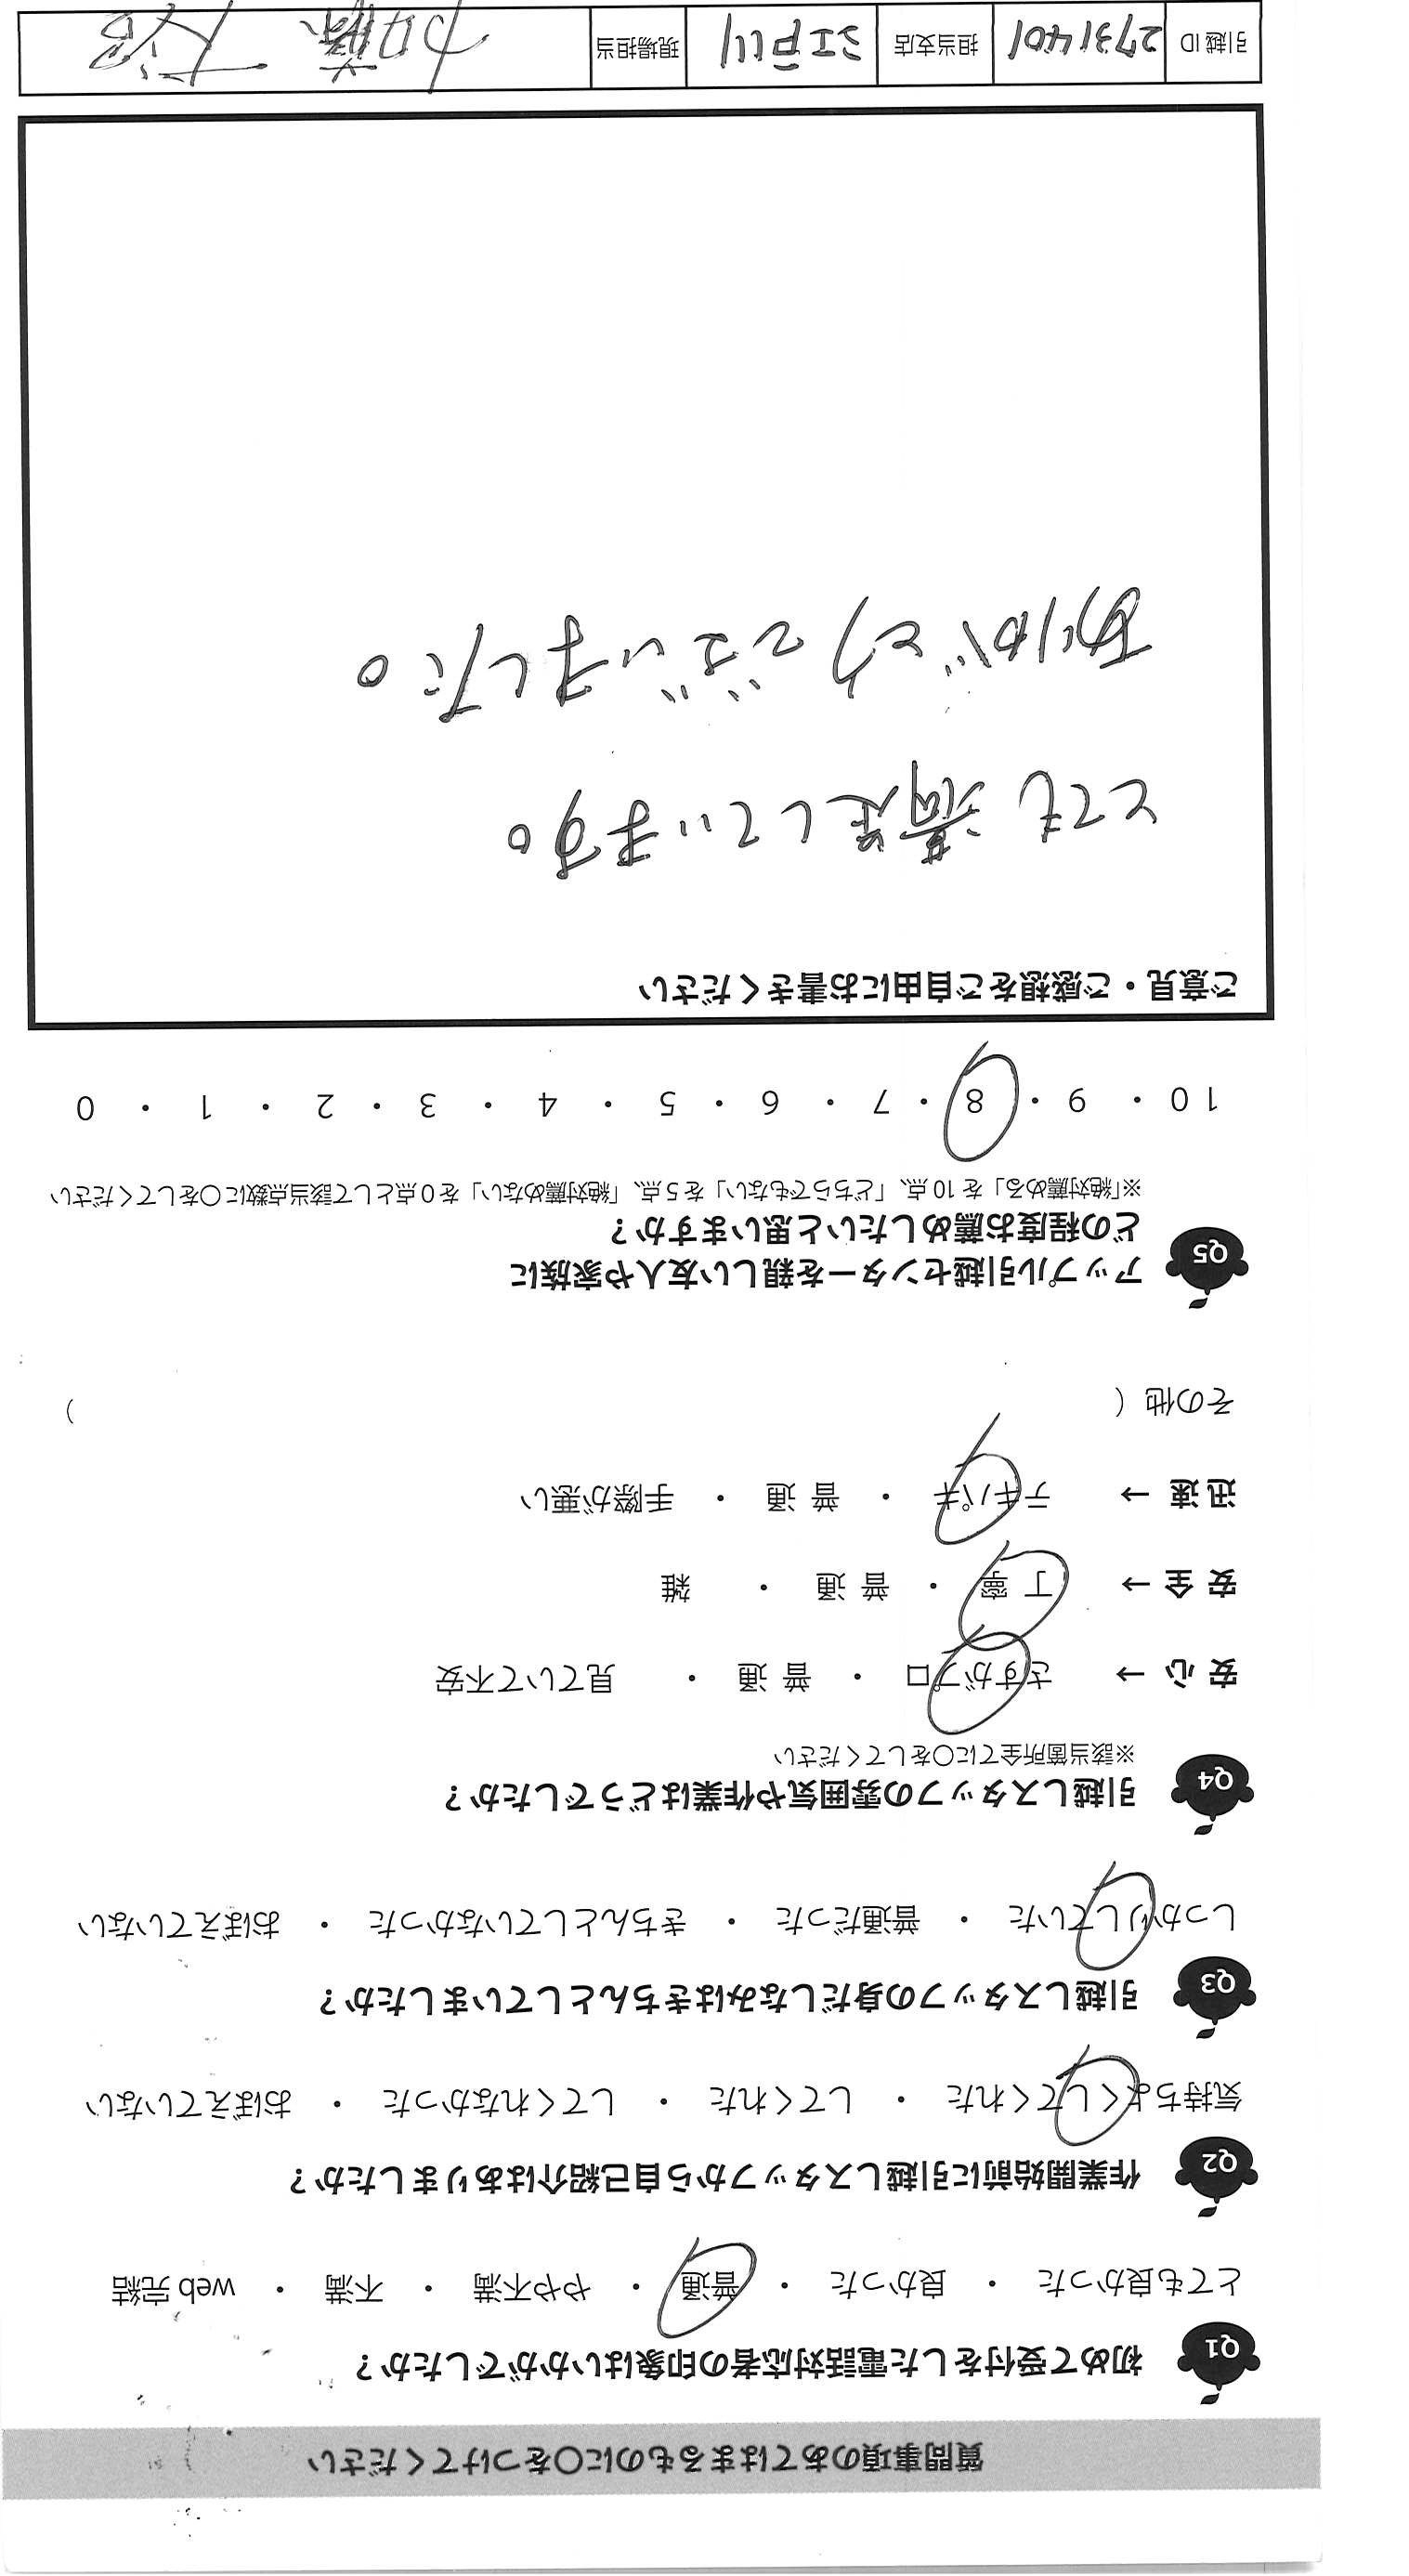 質問事項のあてはまるものに○をつけてください
Q1 初めて受付をした電話対応者の印象はいかがでしたか？
とても良かった ・ 良かった ・ 普通 ・ やや不満 ・ 不満 ・ web完結
Q2 作業開始前に引越しスタッフから自己紹介はありましたか？
気持ちよくしてくれた ・ してくれた ・ してくれなかった ・ おぼえていない
Q3 引越しスタッフの身だしなみはきちんとしていましたか？
しっかりしていた ・ 普通だった ・ きちんとしていなかった ・ おぼえていない
Q4 引越しスタッフの雰囲気や作業はどうでしたか？
※該当箇所全てに○をしてください
安心 → さすがプロ ・ 普通 ・ 見ていて不安
安全 → 丁寧 ・ 普通 ・ 雑
迅速 → テキパキ ・ 普通 ・ 手際が悪い
その他（ ）
Q5 アップル引越センターを親しい友人や家族に
どの程度お薦めしたいと思いますか？
※「絶対薦める」を10点、「どちらでもない」を5点、「絶対薦めない」を0点として該当点数に○をしてください
10 ・ 9 ・ 8 ・ 7 ・ 6 ・ 5 ・ 4 ・ 3 ・ 2 ・ 1 ・ 0
ご意見・ご感想をご自由にお書きください
とても満足しています。
ありがとうございました。
引越ID 2731401 担当支店 江戸川 現場担当 加藤